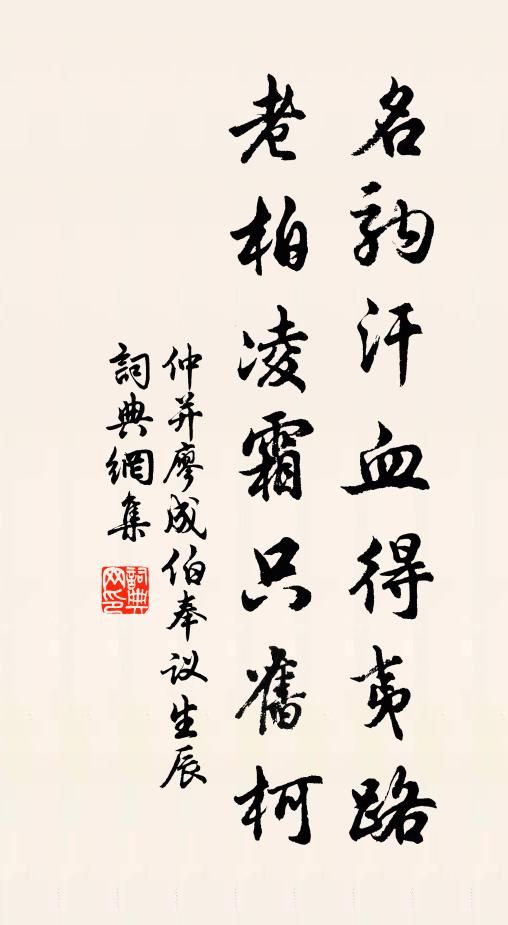 名鞫汗血得夷路
老柏凌霜只舊柯
仲并廖成伯奉议生辰
詞典網集
詞典
网印